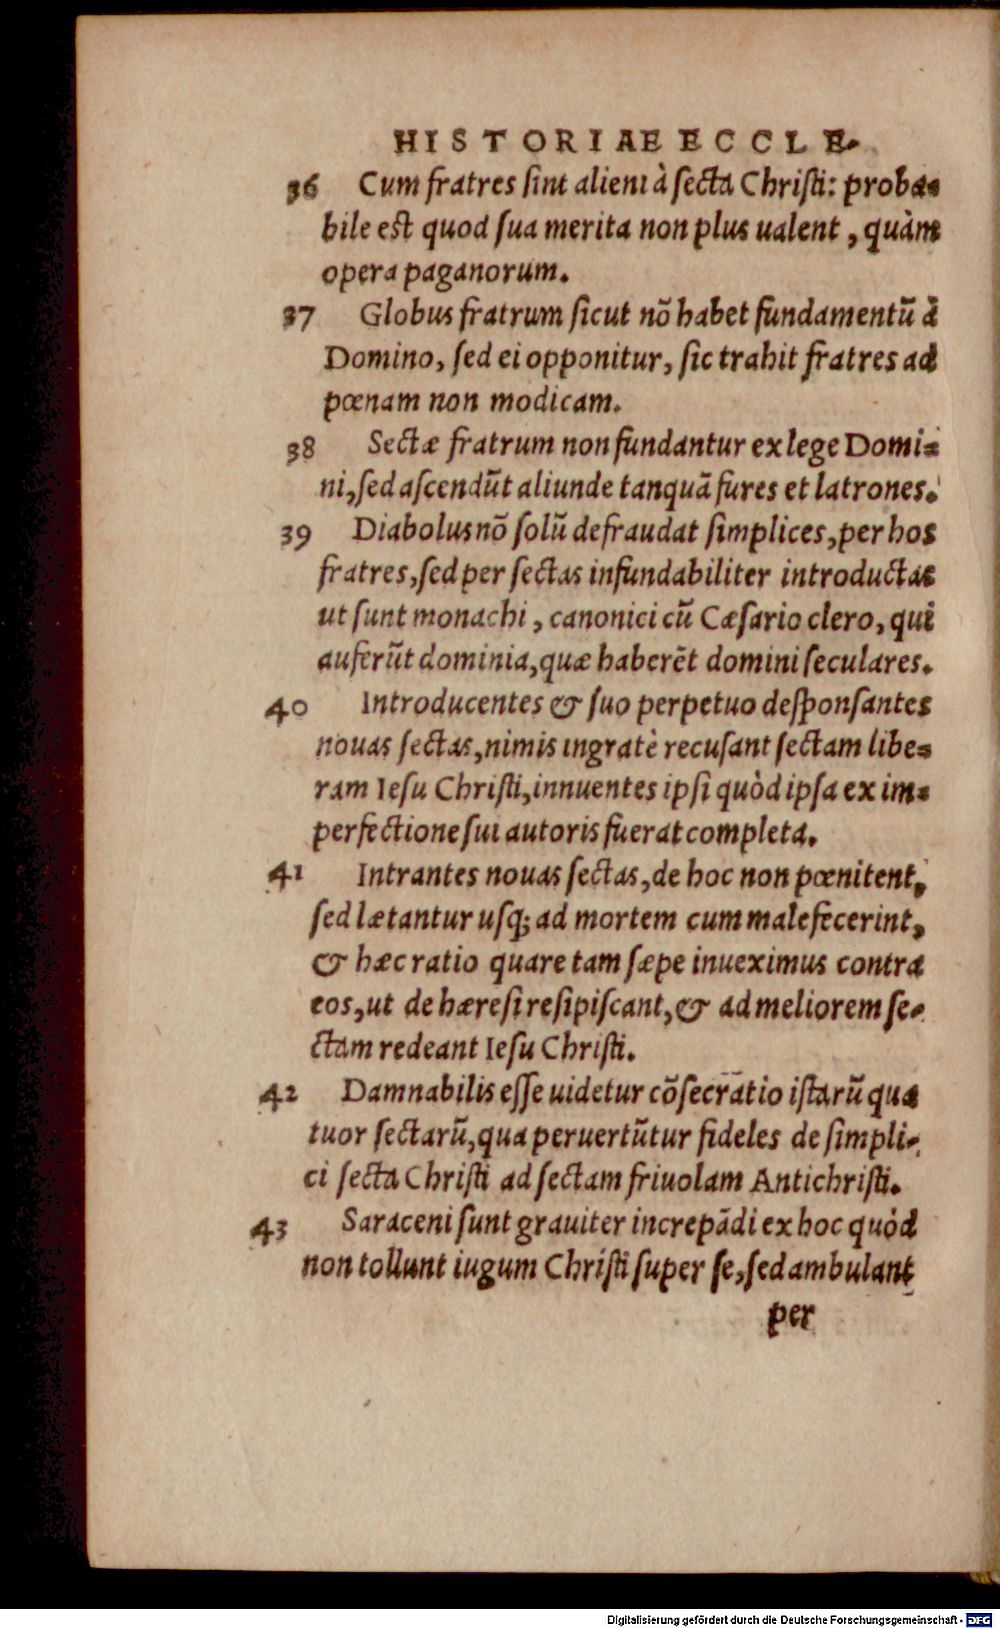 HISTORIAE ECCLE-
36 Cum fratres sint alieni à secta Christi: proba-
bile est quod sua merita non plus ualent, quàm
opera paganorum.
37 Globus fratrum sicut nõ habet fundamentũ à
Domino, sed ei opponitur, sic trahit fratres ad
pœnam non modicam.
38 Sectæ fratrum non fundantur ex lege Domi-
ni, sed ascendũt aliunde tanquã fures et latrones.
39 Diabolus nõ solũ defraudat simplices, per hos
fratres, sed per sectas infundabiliter introductas
ut sunt monachi, canonici cũ Cæsario clero, qui
auferũt dominia, quæ haberẽt domini seculares.
40 Introducentes & suo perpetuo desponsantes
nouas sectas, nimis ingratè recusant sectam libe-
ram Iesu Christi, innuentes ipsi quòd ipsa ex im-
perfectione sui autoris fuerat completa.
41 Intrantes nouas sectas, de hoc non pœnitent,
sed lætantur usq; ad mortem cum malefecerint,
& hæc ratio quare tam sæpe inueximus contra
eos, ut de hæresi resipiscant, & ad meliorem se-
ctam redeant Iesu Christi.
42 Damnabilis esse uidetur cõsecratio istarũ qua
tuor sectarũ, qua peruertũtur fideles de simpli-
ci secta Christi ad sectam friuolam Antichristi.
43 Saraceni sunt grauiter increpãdi ex hoc quòd
non tollunt iugum Christi super se, sed ambulant
per
Digitalisierung gefördert durch die Deutsche Forschungsgemeinschaft - DFG